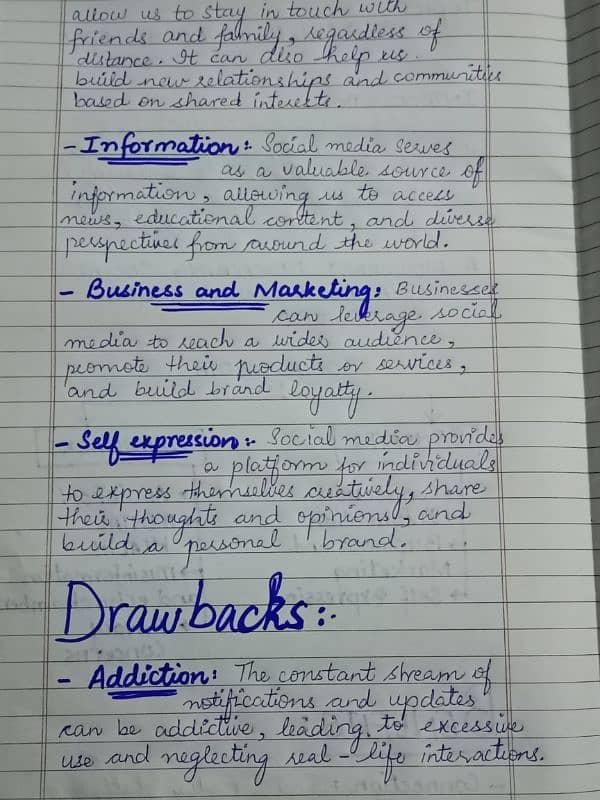 allow us to stay in touch with
friends and family, regardless of
distance. It can also help us
build new relationships and communities
based on shared interests.
- Information: Social media serves
as a valuable source of
information, allowing us to access
news, educational content, and diverse
perspectives from around the world.
- Business and Marketing: Businesses
can leverage social
media to reach a wider audience,
promote their products or services,
and build brand loyalty.
- Self expression:- Social media provides
a platform for individuals
to express themselves creatively, share
their thoughts and opinions, and
build a personal brand.
Drawbacks:-
- Addiction: The constant stream of
notifications and updates
can be addictive, leading to excessive
use and neglecting real-life interactions.